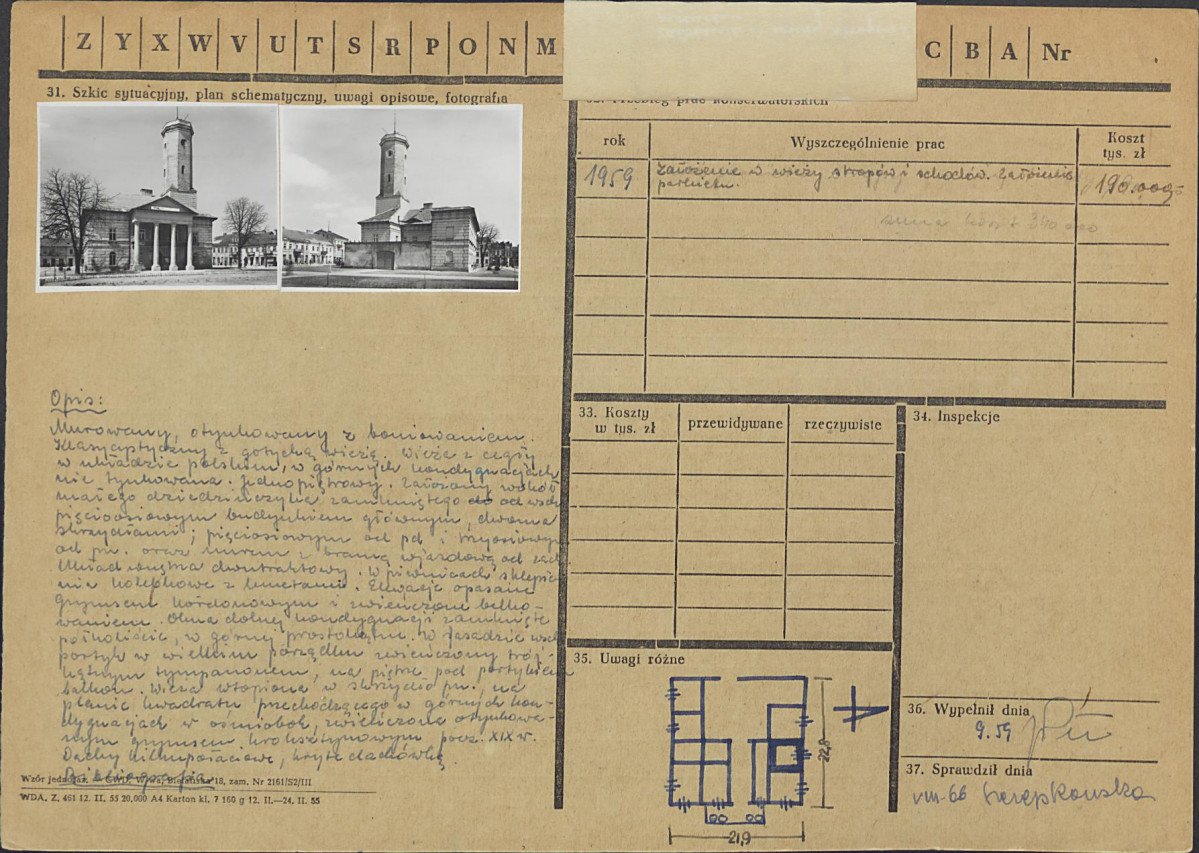 Z Y X W V U T S R P O N M
C B A Nr
31. Szkic sytuacyjny, plan schematyczny, uwagi opisowe, fotografia
Opis:
Murowany, otynkowany z boniowaniem.
Klasycystyczny z gotycką wieżą. Wieża z cegły
w układzie polskim, w górnych kondygnacjach
nie tynkowana. Jednopiętrowy. Założony wokół
małego dziedzińczyka zamkniętego od wsch
pięcioosiowym budynkiem głównym, dwoma
skrzydłami; pięciosiowym od pd i trzyosiowym
od pn. oraz murem z bramą wjazdową od zach
Układ wnętrza dwutraktowy. W piwnicach sklepie
nie kolebkowe z lunetami. Elewacje opasane
gzymsem kordonowym i zwieńczone belko-
waniem. Okna dolnej kondygnacji zamknięte
półkoliście, w górnej prostokątne. W fasadzie wsch
portyk w wielkim porządku zwieńczony trój-
kątnym tympanonem, na piętrze pod portykiem
balkon. Wieża wtopiona w skrzydło pn., na
planie kwadratu przechodzącego w górnych kon-
dygnacjach w ośmiobok, zwieńczona otynkowa-
nym gzymsem kroksztynowym pocz. XIX w.
Dachy kilkupołaciowe, kryte dachówką
Bibliografia
Wzór jednoraz. — GWD, W-wa, Bielańska 18, zam. Nr 2161/S2/III
WDA. Z. 461 12. II, 55 20,000 A4 Karton kl. 7 160 g 12. II.—24. II. 55
32. Przebieg prac konserwatorskich
rok
Wyszczególnienie prac
Koszt
tys. zł
1959
Założenie w wieży stropów i schodów. Założenie
parkietu.
190.000,-
suma koszt 840 000
33. Koszty
w tys. zł
przewidywane
rzeczywiste
34. Inspekcje
35. Uwagi różne
22,8
21,9
36. Wypełnił dnia
9.59
37. Sprawdził dnia
VIII-66